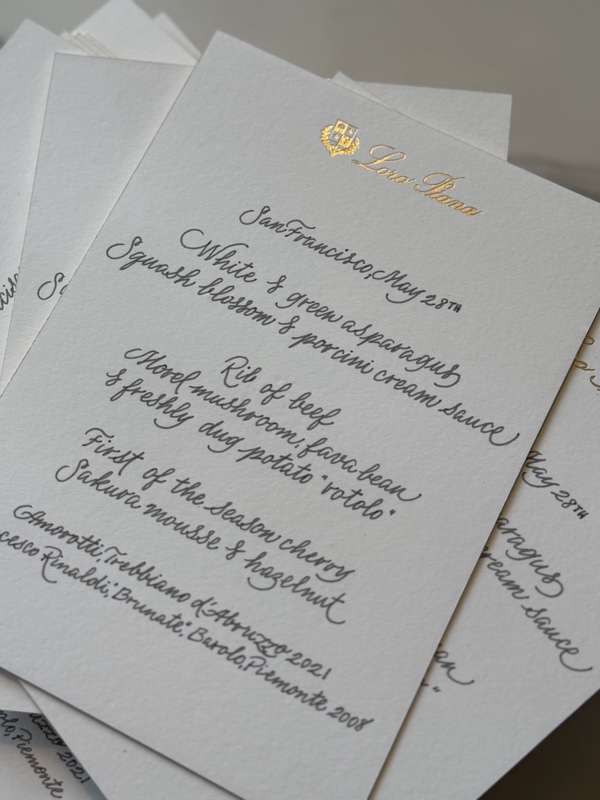 Loro Piana
San Francisco, May 28TH
White & green asparagus
Squash blossom & porcini cream sauce
Rib of beef
Morel mushroom, fava bean
& freshly dug potato "rotolo"
First of the season cherry
Sakura mousse & hazelnut
Amorotti, Trebbiano d'Abruzzo 2021
cesco Rinaldi, "Brunate", Barolo, Piemonte 2008
May 28TH
aragus
ream sauce
an
2021
Piemonte